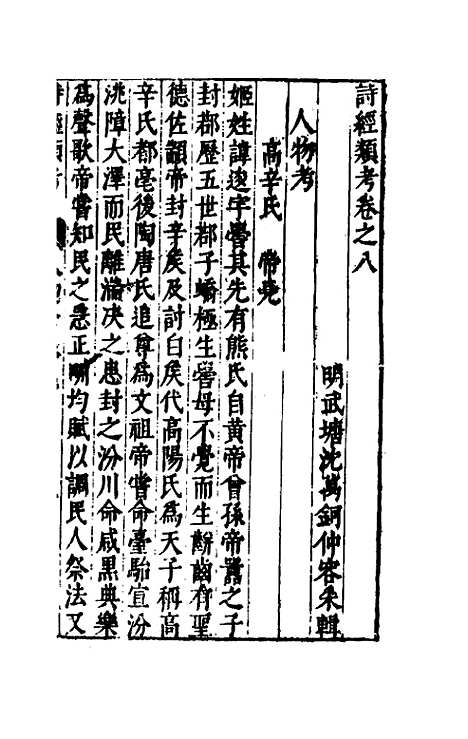 詩經類考卷之八
明武塘沈萬鈳仲容朱輯
人物考
高辛氏　帝嚳
姬姓諱逡字嚳其先有熊氏自黃帝曾孫帝嚚之子
封鄀歷五世鄀子蟜極生嚳母不覺而生斷齒有聖
德佐顓帝封辛矦及討臼矦代高陽氏爲天子稱高
辛氏都亳後陶唐氏追尊爲文祖帝嚳命臺駘宣汾
洮障大澤而民離滀决之患封之汾川命咸黑典樂
爲聲歌帝嚳知民之急正明均賦以調民人祭法又
詩經類考